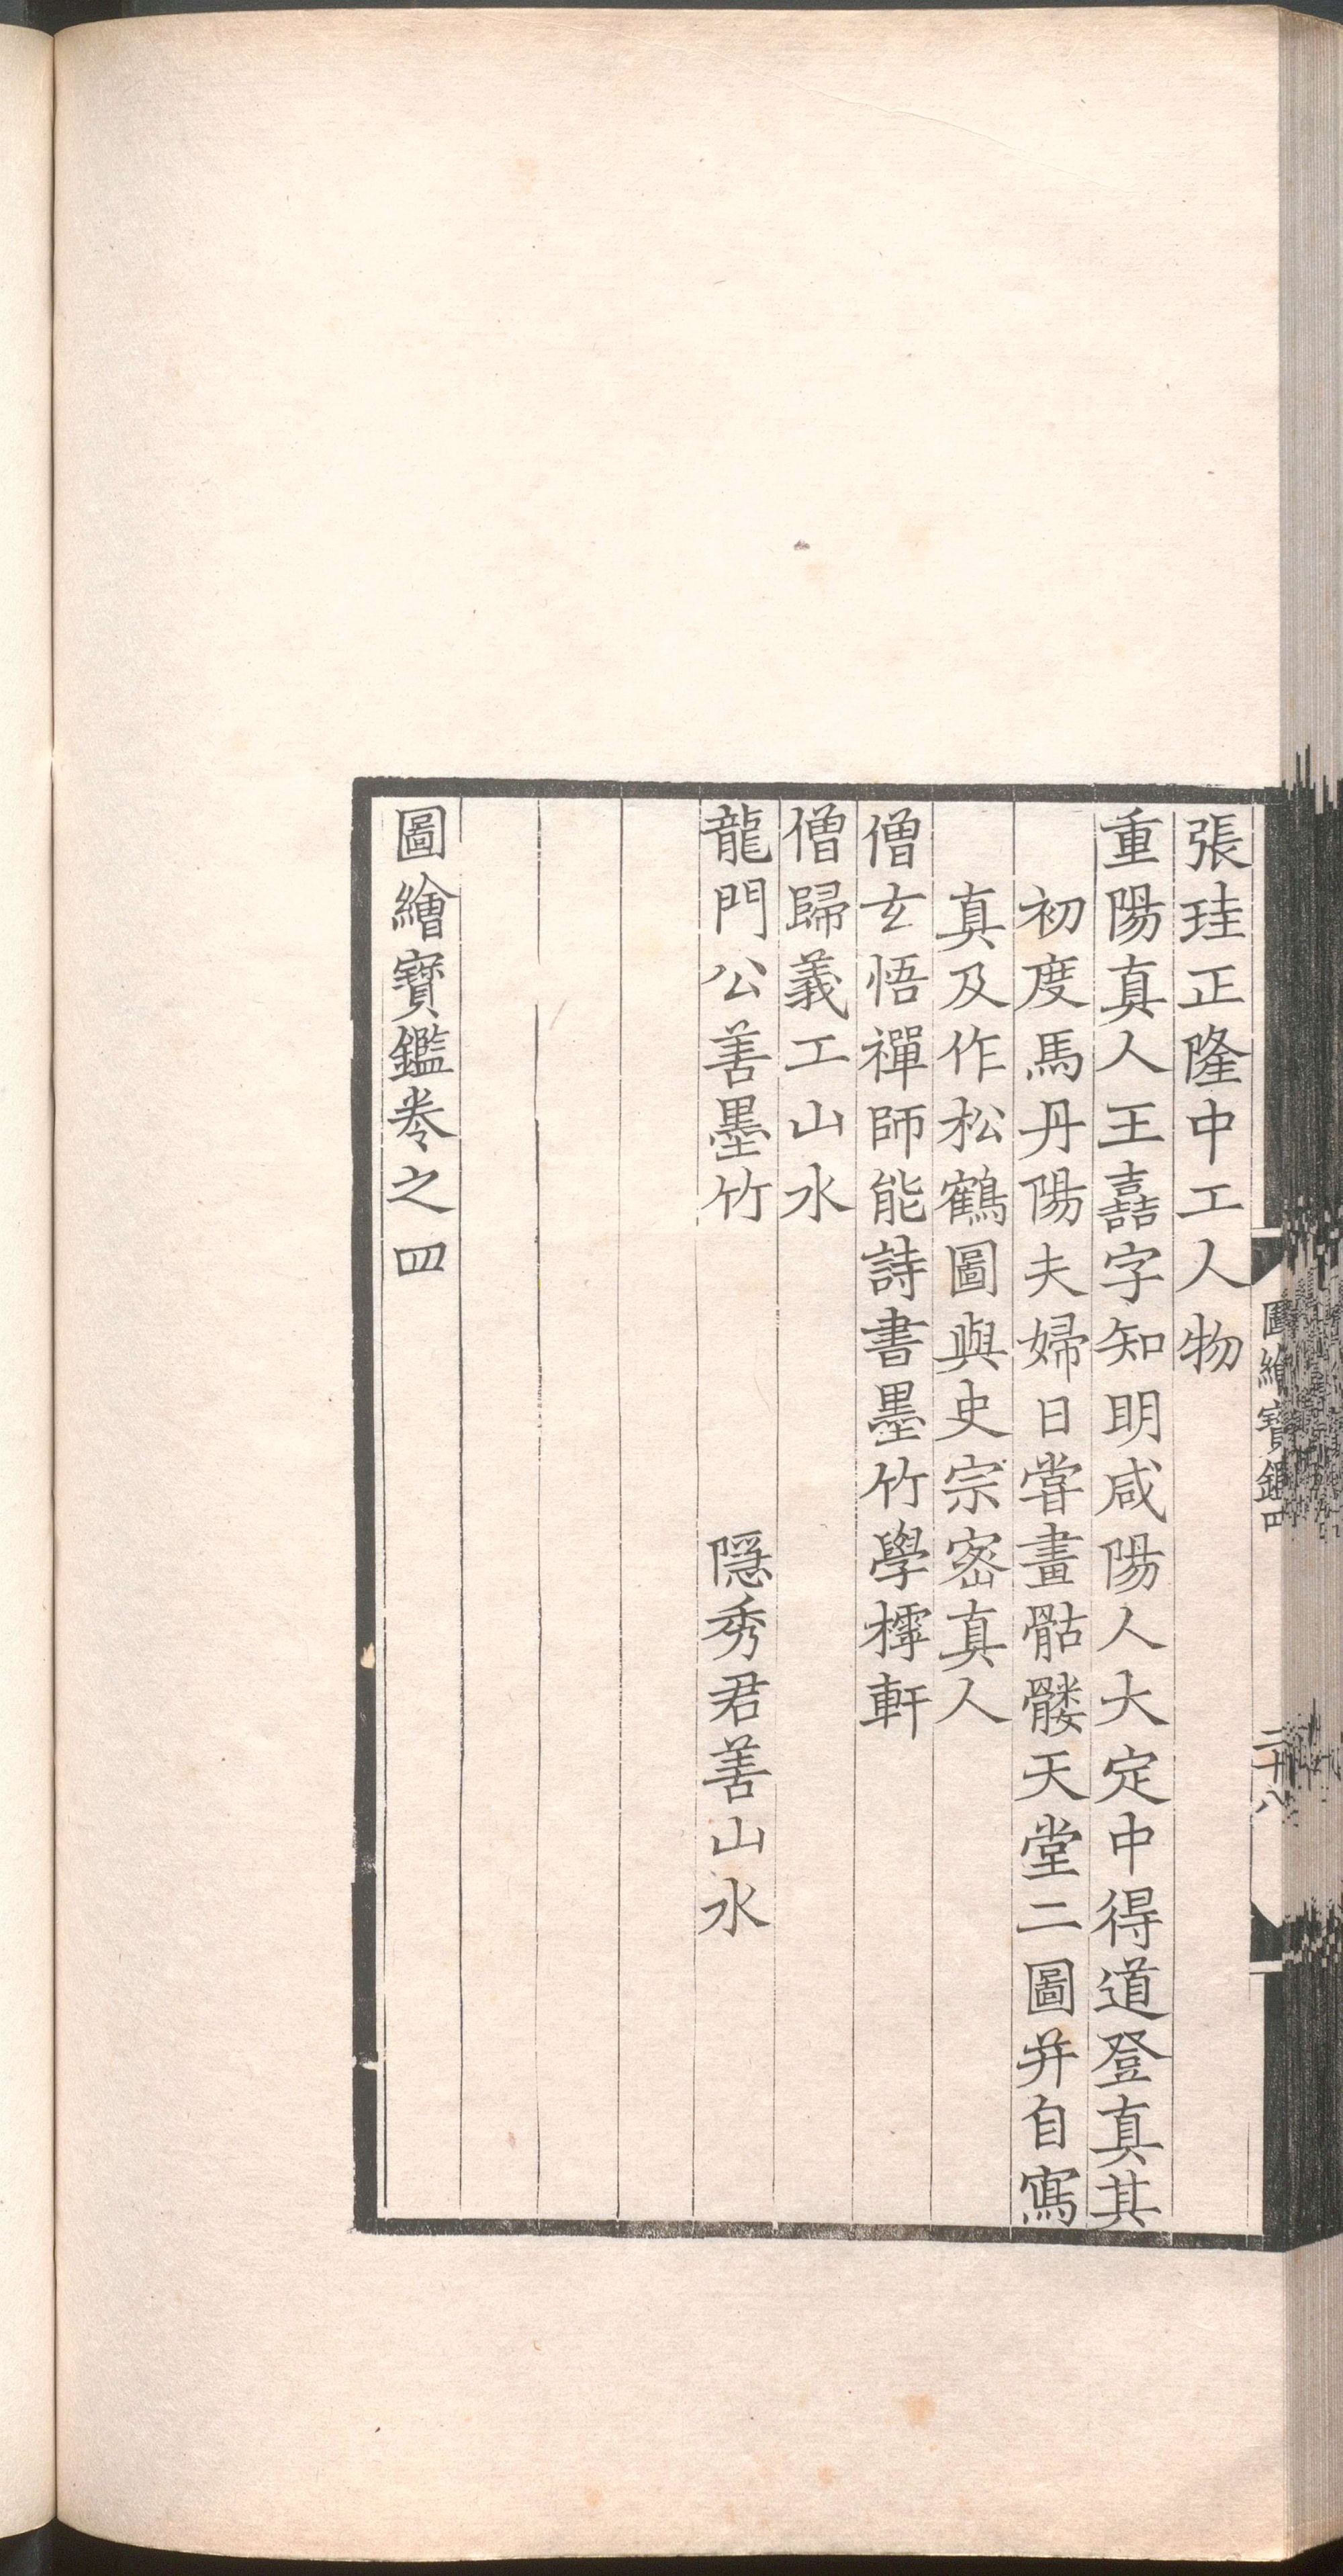 張珪正隆中工人物
重陽真人王嚞字知明咸陽人大定中得道登真其
初度馬丹陽夫婦日嘗畫骷髏天堂二圖并自寫
真及作松鶴圖與史宗密真人
僧玄悟禪師能詩書墨竹學樗軒
僧歸義工山水
龍門公善墨竹 隠秀君善山水
圖繪寶鑑卷之四
圖繪寶鑑四
二十八